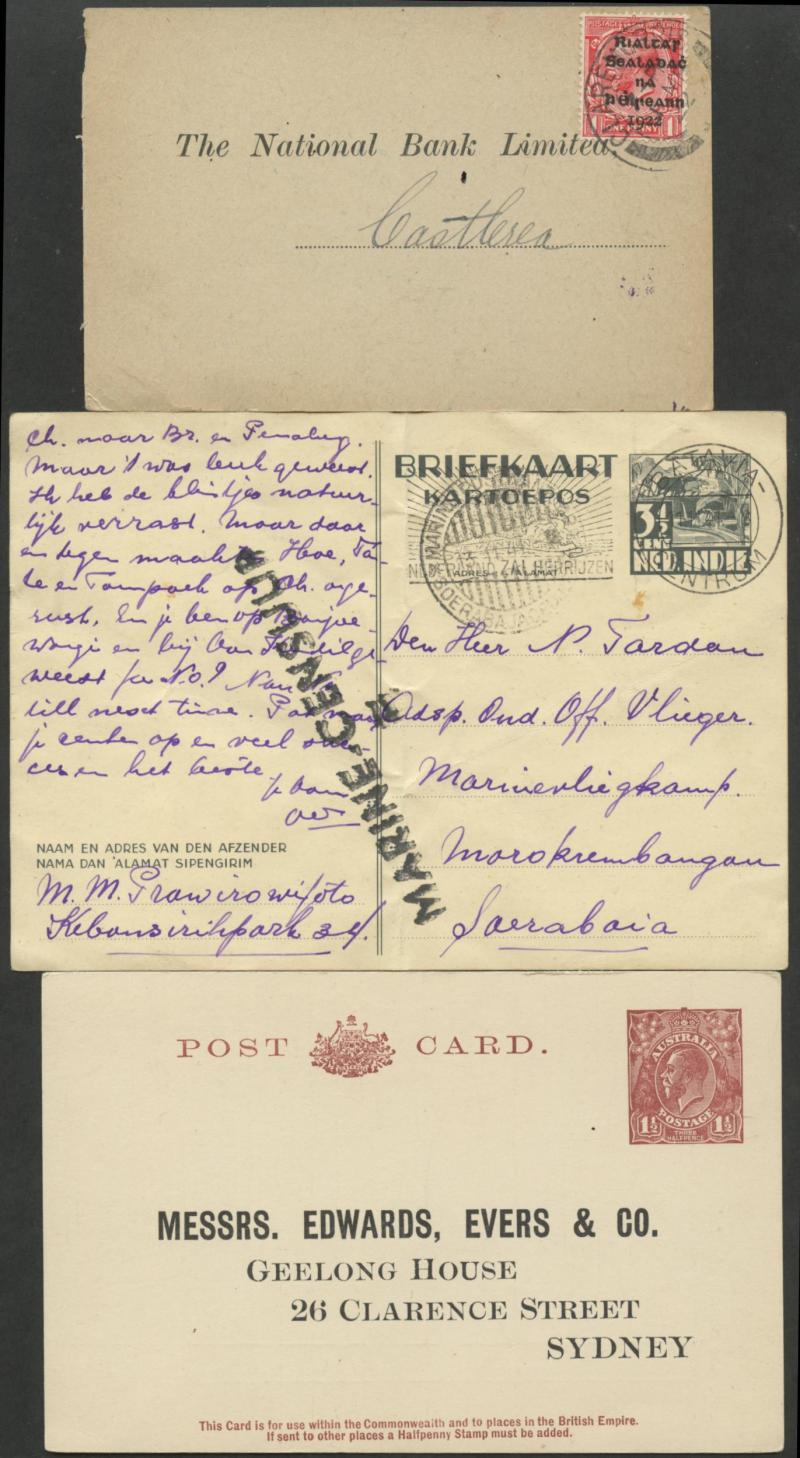 Rialtas
Sealadaċ
na
hÉireann
1922
The National Bank Limited
Castlerea
Ch. naar Br. en
Maar 't was leuk geweest.
Ik heb de natuur-
lijk verrast. Maar daar
en tegen maakte Hoe, Ta-
te en op Ch. onge-
rust. En je ben op
en bij
weest for No. 9
till next time. Pas maar
je centen op en veel suc-
ces en het beste
je
MARINE-CENSUUR
NAAM EN ADRES VAN DEN AFZENDER
NAMA DAN ʻALAMAT SIPENGIRIM
M. M. Prawirowijoto
Kebonsirihpark 34.
BRIEFKAART
KARTOEPOS
ADRES - ALAMAT
NEDERLAND ZAL HERRIJZEN
3½
CENT
NED. INDIE
BATAVIA-
CENTRUM
SOERABAJA
Den Heer N. Tardan
Adsp. Ond. Off. Vlieger.
Marinevliegkamp.
Morokrembangan
Soerabaia
POST CARD.
AUSTRALIA
POSTAGE
1½ 1½
THREE
HALFPENCE
MESSRS. EDWARDS, EVERS & CO.
GEELONG HOUSE
26 CLARENCE STREET
SYDNEY
This Card is for use within the Commonwealth and to places in the British Empire.
If sent to other places a Halfpenny Stamp must be added.